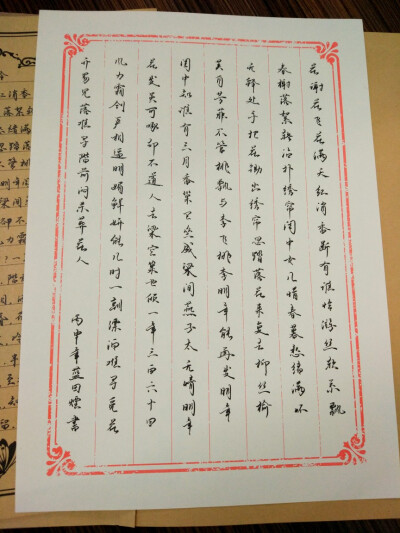 花谢花飞花满天红消香断有谁怜游丝软系飘
春榭落絮轻沾扑绣帘闺中女儿惜春暮愁绪满怀
无释处手把花锄出绣帘忍踏落花来复去柳丝榆
荚自芳菲不管桃飘与李飞桃李明年能再发明年
闺中知谁有三月香巢已垒成梁间燕子太无情明年
花发虽可啄却不道人去梁空巢也倾一年三百六十日
风刀霜剑严相逼明媚鲜妍能几时一朝漂泊难寻觅花
开易见落难寻阶前闷杀葬花人
丙申年蓝田书